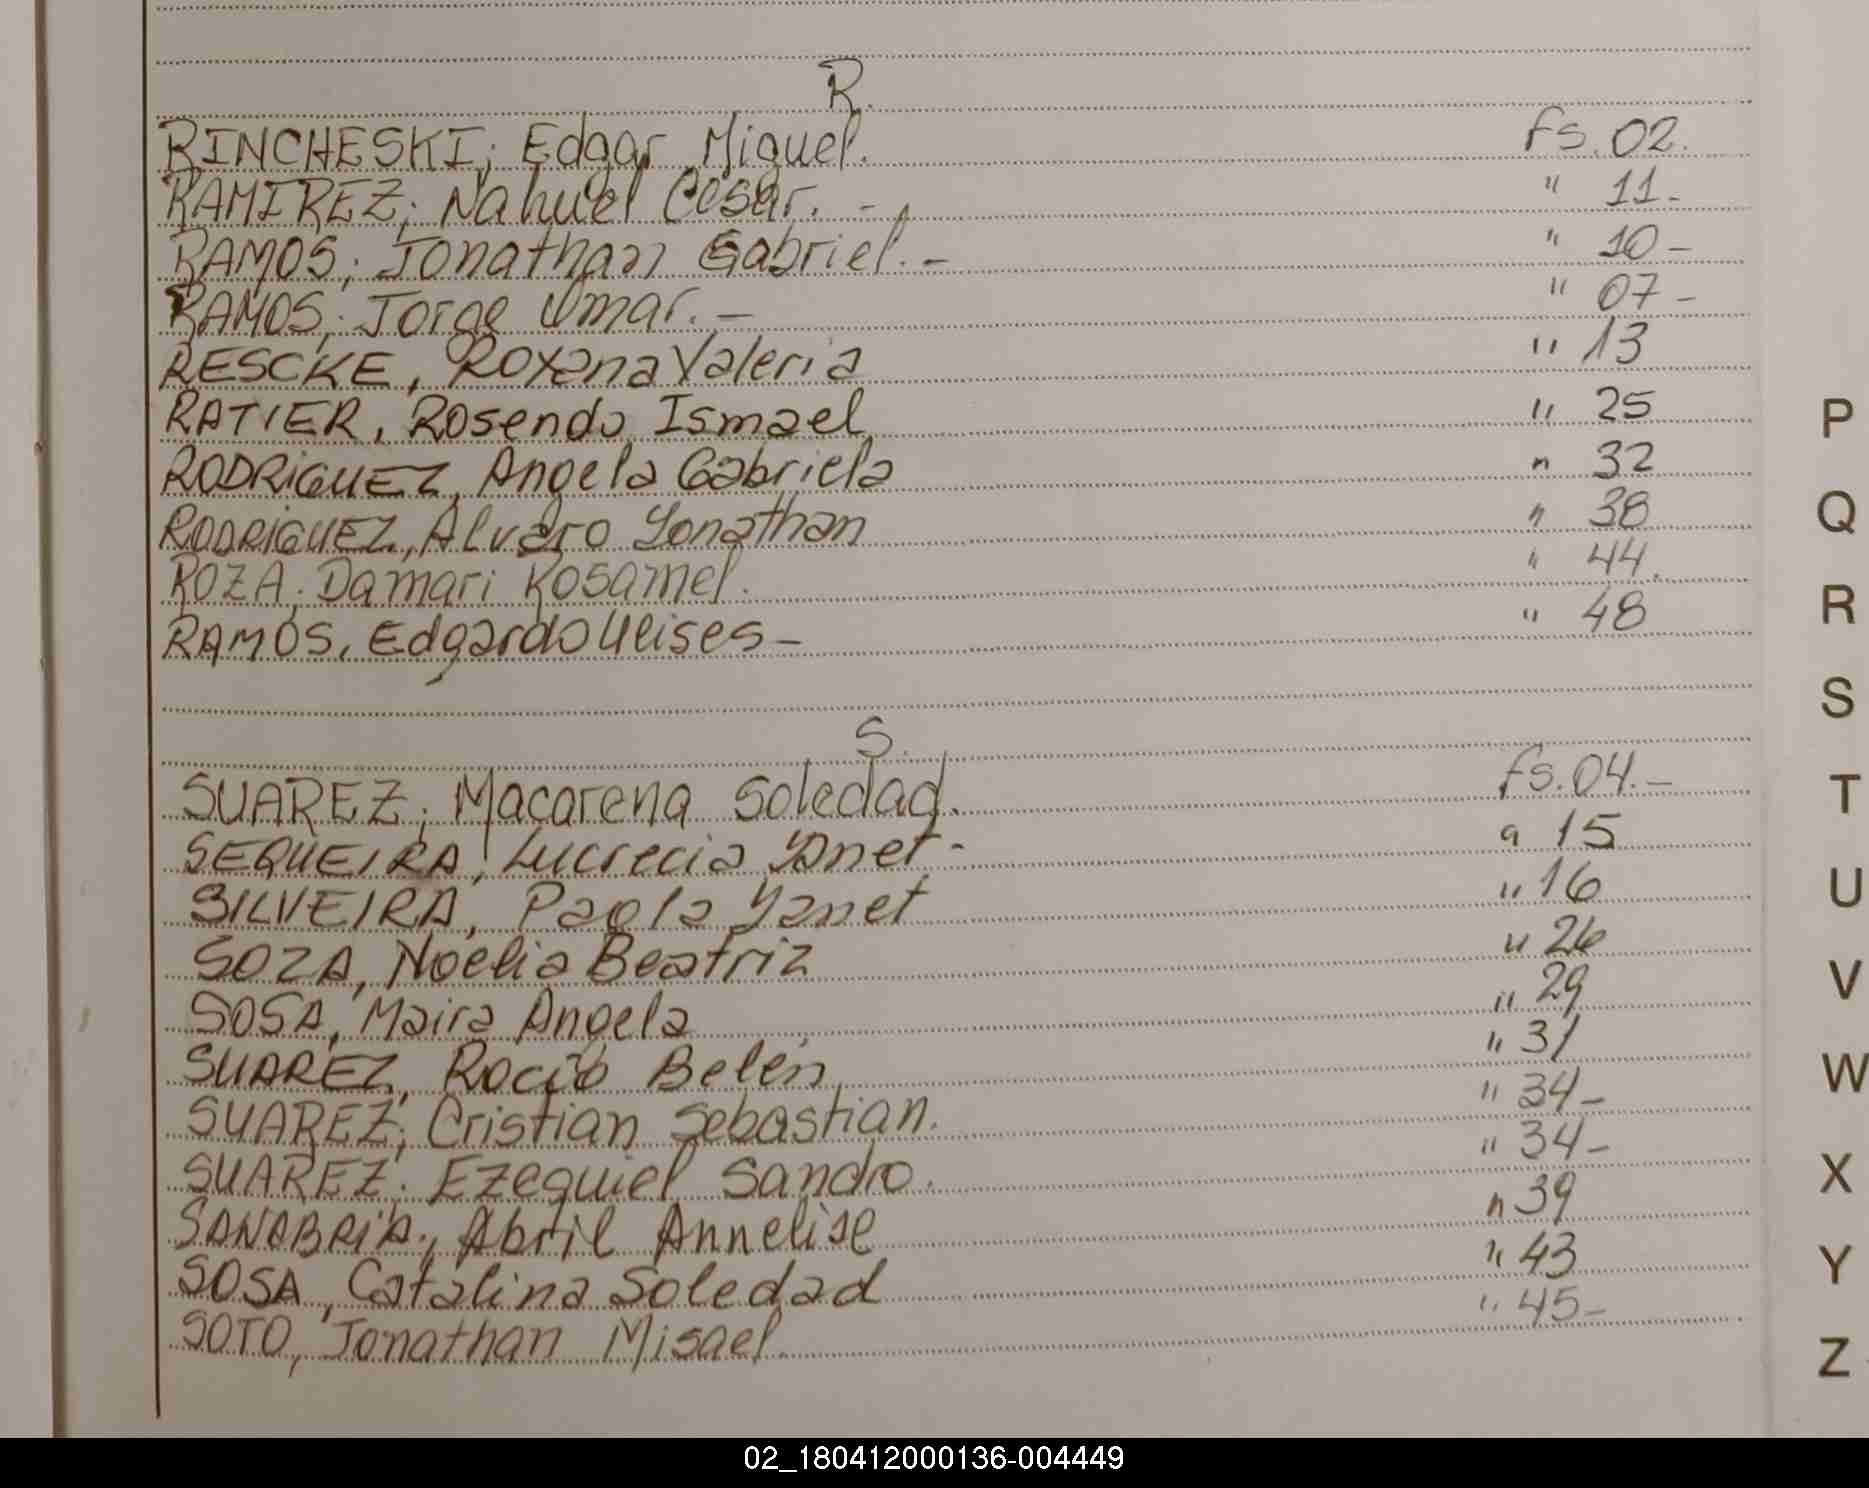 R.
RINCHESKI; Edgar Miguel. fs. 02.
RAMIREZ; Nahuel Cesar. - " 11-
RAMOS; Jonathan Gabriel. - " 10-
RAMOS; Jorge Omar. - " 07-
RESCKE, Roxana Valeria " 13
RATIER, Rosendo Ismael " 25
RODRIGUEZ, Angela Gabriela " 32
RODRIGUEZ, Alvaro Yonathan " 38
ROZA; Damari Rosamel. " 44.
RAMOS, Edgardo Ulises - " 48
S.
SUAREZ; Macarena Soledad. fs. 04.-
SEQUEIRA, Lucrecia Yanet- " 15
SILVEIRA, Paola Yanet " 16
SOZA, Noelia Beatriz " 26
SOSA, Maira Angela " 29
SUAREZ, Rocío Belén " 31
SUAREZ; Cristian Sebastian. " 34-
SUAREZ; Ezequiel Sandro. " 34-
SANABRIA, Abril Annelise " 39
SOSA, Catalina Soledad " 43
SOTO, Jonathan Misael. " 45-
P
Q
R
S
T
U
V
W
X
Y
Z
02_180412000136-004449